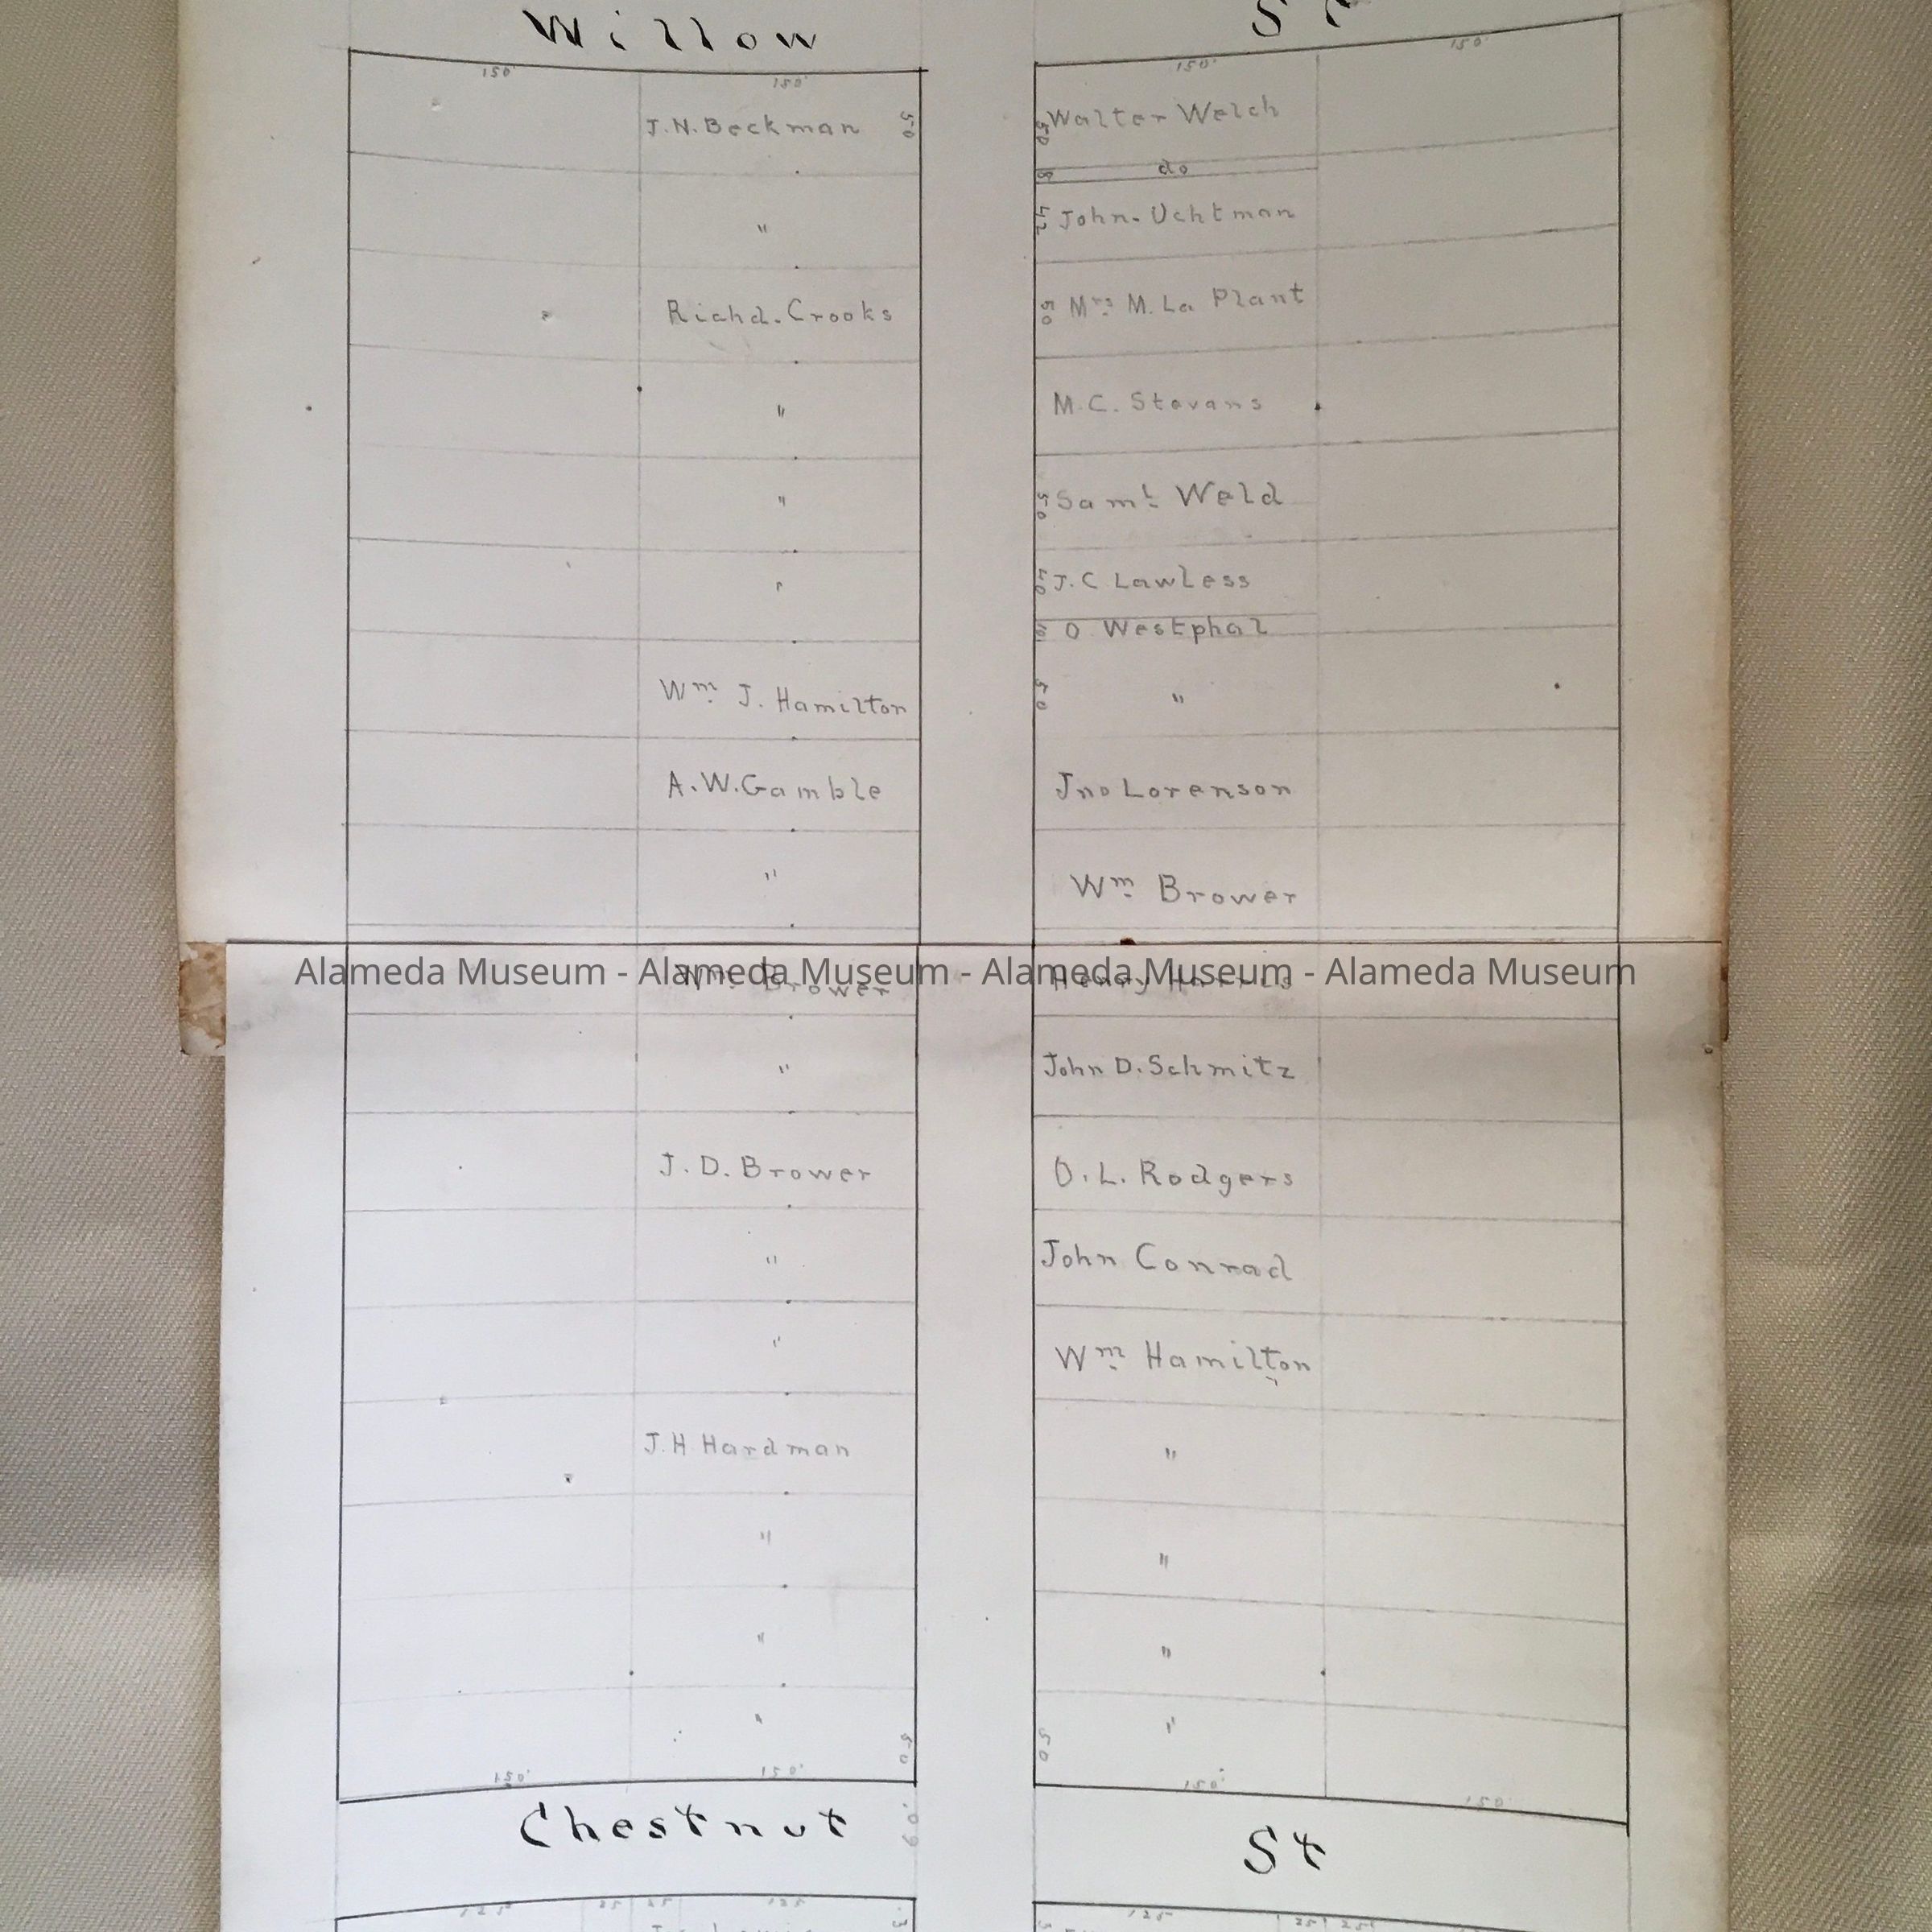 Willow St
150' 150' 150' 150'
J.N. Beckman 50
"
Richd. Crooks
"
"
"
Wm. J. Hamilton
A.W. Gamble
"
Wm. Brower
"
J. D. Brower
"
"
J. H Hardman
"
"
"
50
150' 150'
50 Walter Welch
8 do
42 John. Uchtman
50 Mrs. M. La Plant
M. C. Stevans
50 Saml. Weld
50 J. C Lawless
10 O Westphal
50 "
Jno Lorenson
Wm. Brower
Henry Harris
John D. Schmitz
O. L. Rodgers
John Conrad
Wm. Hamilton
"
"
"
"
50
150' 150'
Alameda Museum - Alameda Museum - Alameda Museum - Alameda Museum
Chestnut 60' St
125 25 25 125
125 25 25